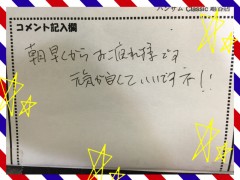 ハンサム Classic
コメント記入欄
朝早くからお疲れ様です
元気が良していいですネ!!